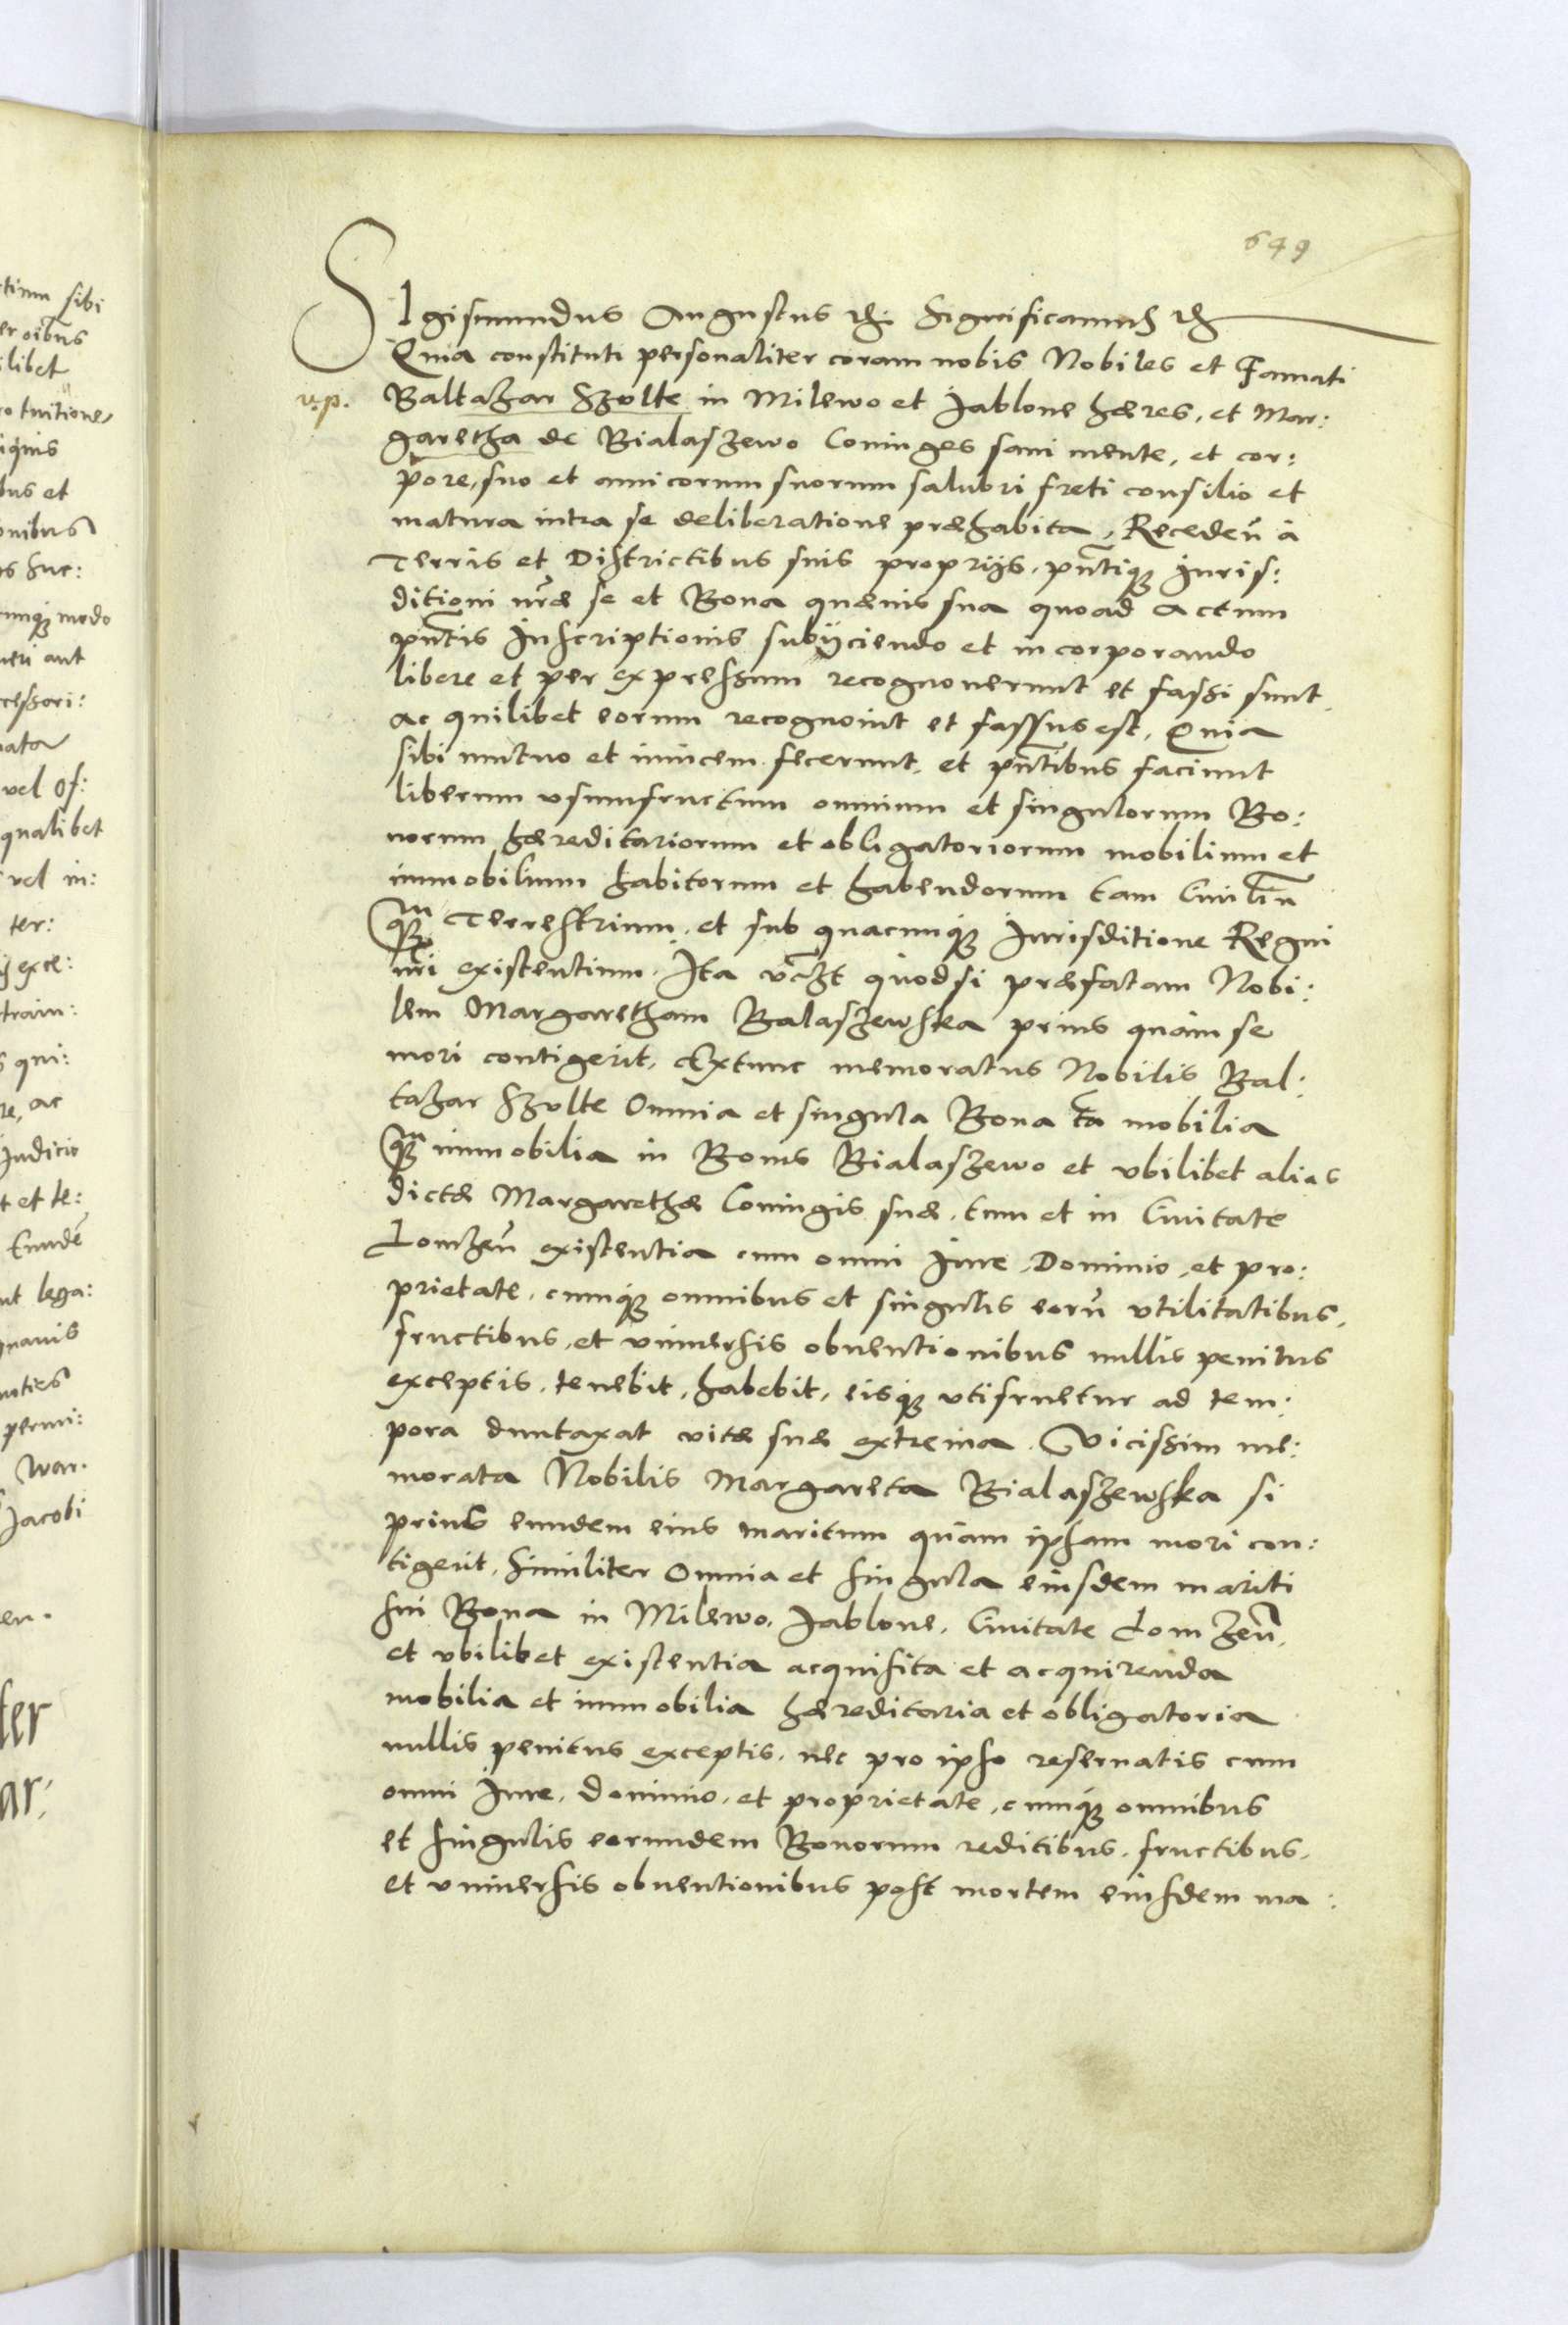 649
SIgismundus Augustus etc. Significamus etc
Quia constituti personaliter coram nobis Nobiles et Famati
v.p.
Baltazar Szolte in Milewo et Jablone hæres, et Mar:
garetha de Bialaszewo Coniuges sani mente, et cor:
pore, suo et amicorum suorum salubri freti consilio et
matura intra se deliberatione præhabita, Recedeñ à
Terris et Districtibus suis proprijs, pñtiq; Iuris:
ditioni nræ se et Bona quævis sua quoad actum
pñtis Inscriptionis subijciendo et incorporando
libere et per expressum recognouerunt et fassi sunt,
ac quilibet eorum recognouit et fassus est, Quia
sibi mutuo et inuicem fecerunt, et pñtibus faciunt
liberum vsumfructum omnium et singulorum Bo:
norum hæreditariorum et obligatoriorum mobilium et
immobilium habitorum et habendorum tam Ciuiliũ
qm̃ Terrestrium, et sub quacunq; Iurisditione Regni
nri existentium. Ita vczt quod si præfatam Nobi:
lem Margaretham Balaszewska prius quàm se
mori contigerit, Extunc memoratus Nobilis Bal:
tazar Szolte Omnia et singula Bona tã mobilia
qm̃ immobilia in Bonis Bialaszewo et vbilibet alias
dictæ Margarethæ Coniugis suæ, tum et in Ciuitate
Lomzeñ existentia cum omni Iure, Dominio, et pro:
prietate, cumq; omnibus et singulis eorũ vtilitatibus,
fructibus, et vniuersis obuentionibus nullis penitus
exceptis, tenebit, habebit, eisq; vtifruetur ad tem:
pora duntaxat vitæ suæ extrema. Vicissim me:
morata Nobilis Margareta Bialaszewska si
prius eundem eius maritum quàm ipsam mori con:
tigerit, Similiter Omnia et singula eiusdem mariti
sui Bona in Milewo, Jablone, Ciuitate Lomzeñ,
et vbilibet existentia acquisita et acquirenda
mobilia et immobilia hæreditaria et obligatoria
nullis penitus exceptis, nec pro ipso reseruatis cum
omni Iure, dominio, et proprietate, cumq; omnibus
et singulis eorundem Bonorum reditibus, fructibus,
et vniuersis obuentionibus post mortem eiusdem ma: